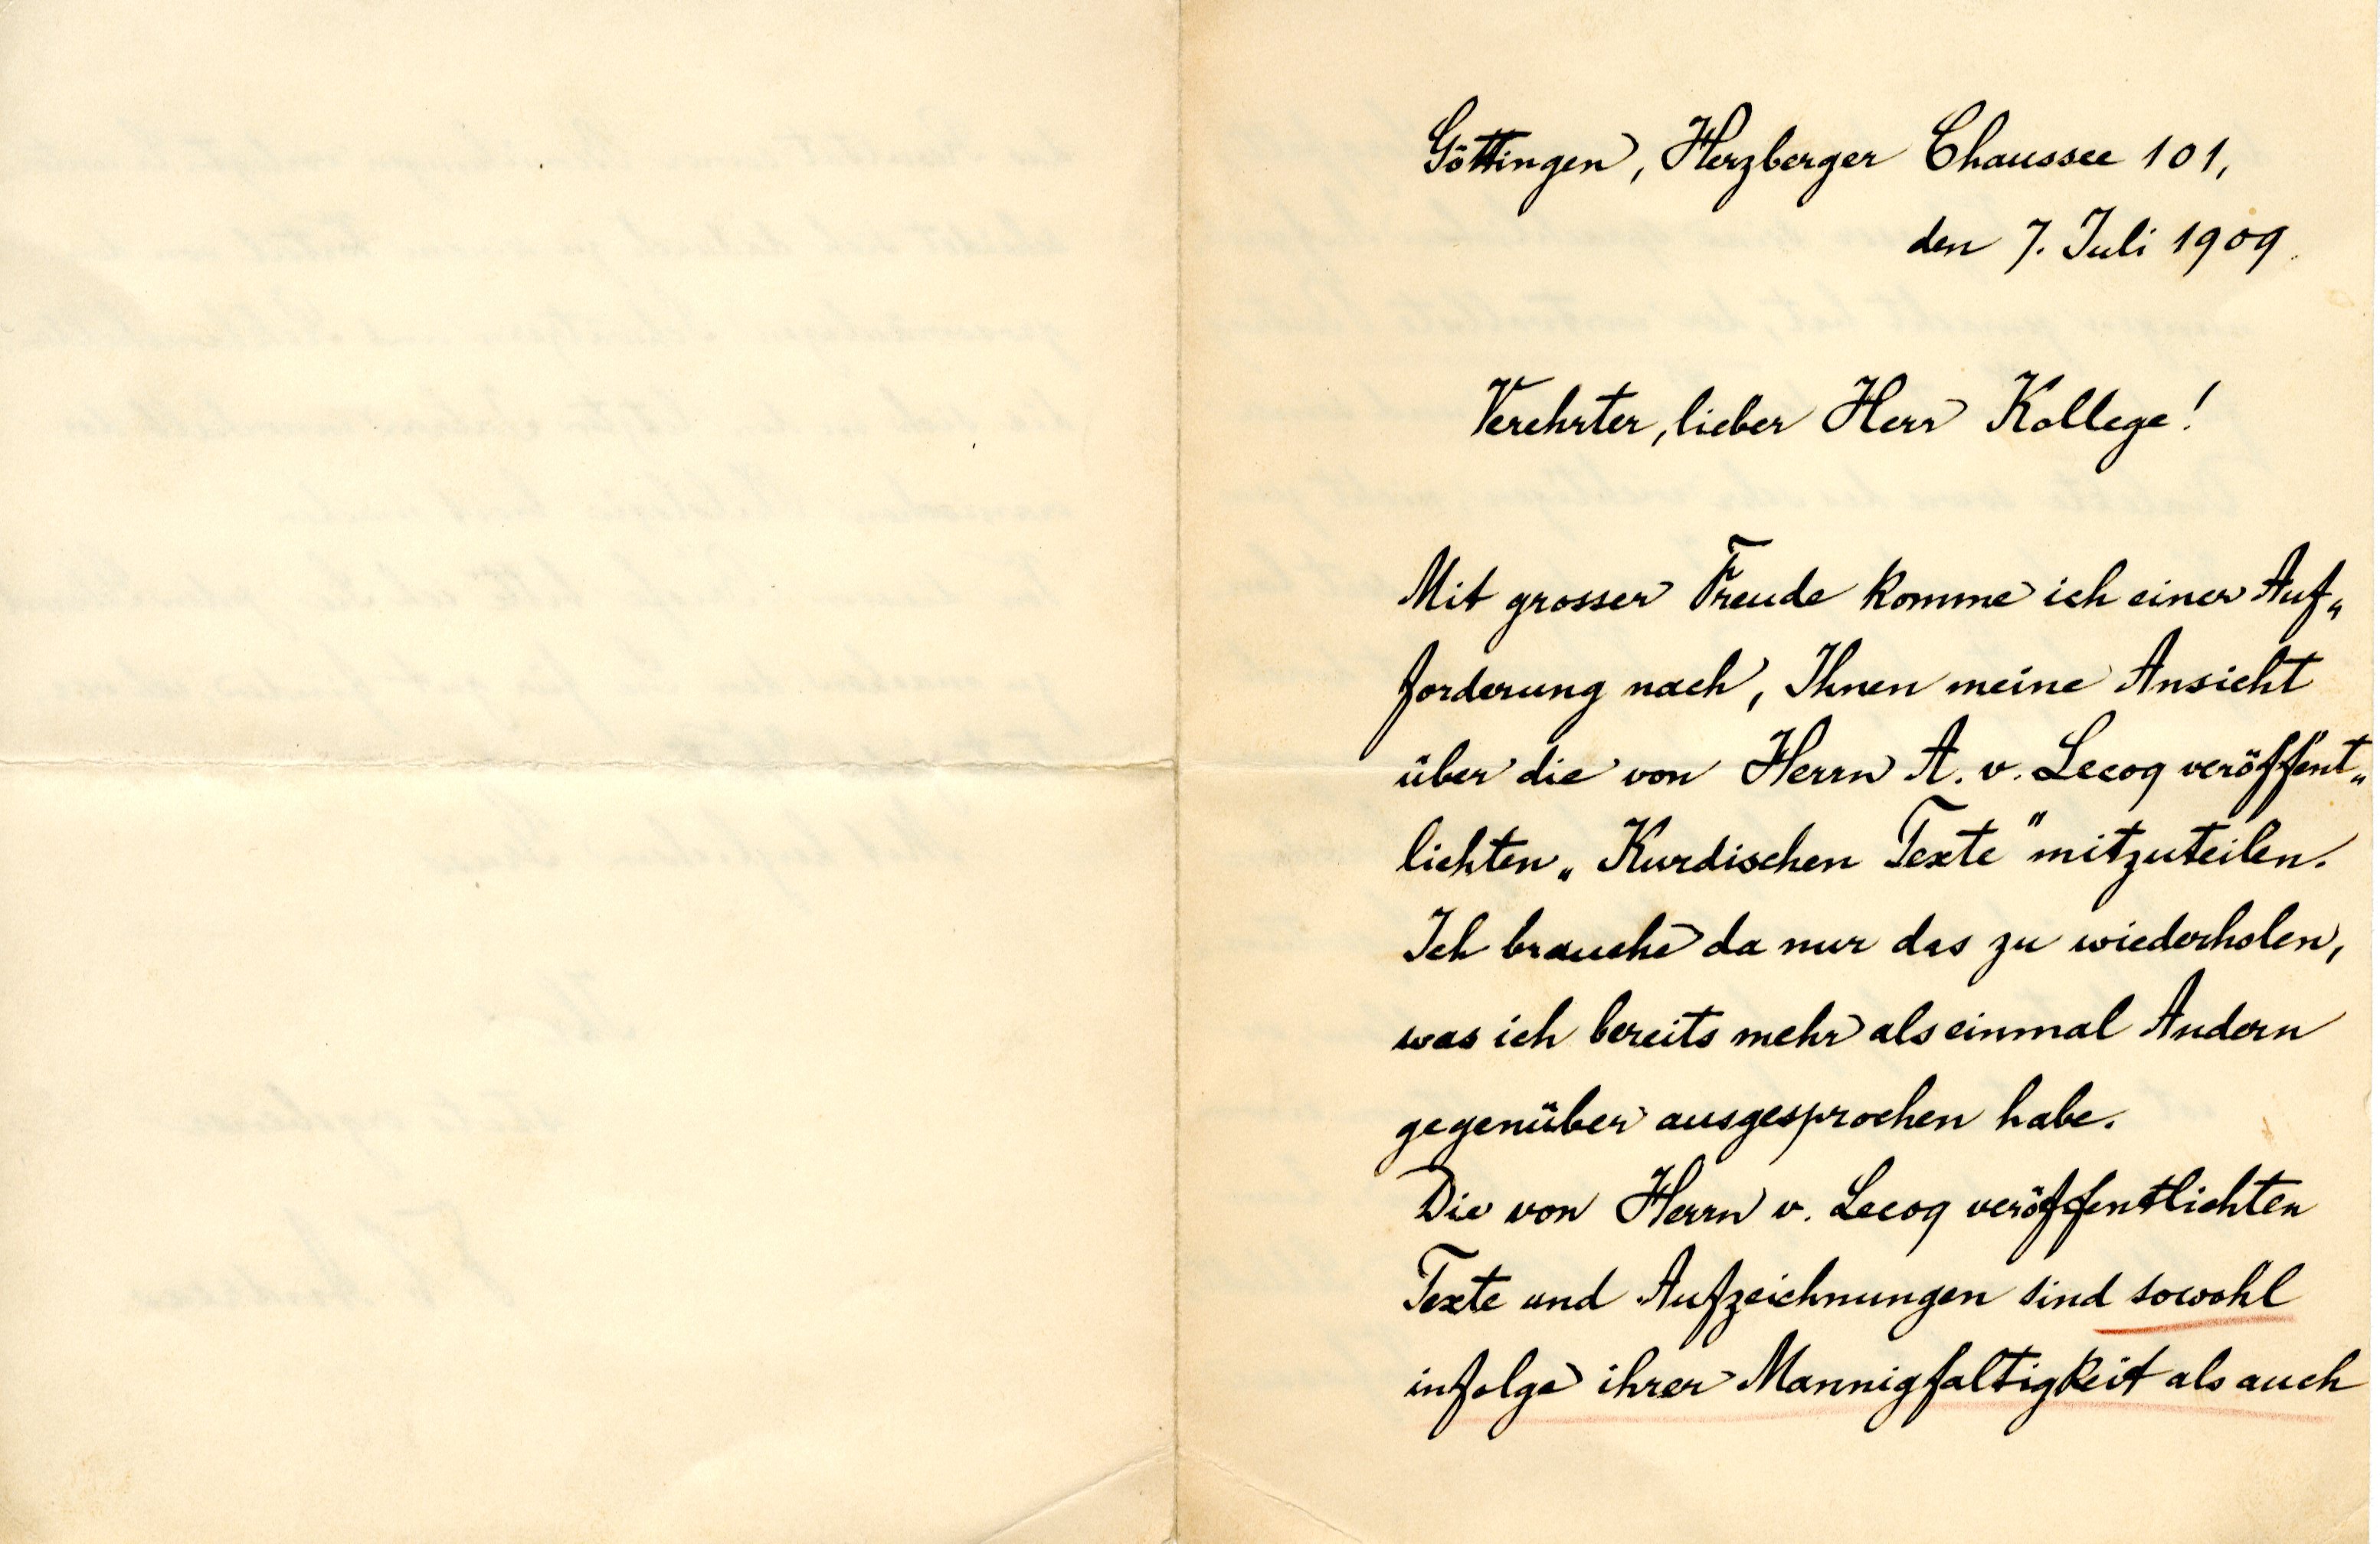 Göttingen, Herzberger Chaussee 101,
den 7. Juli 1909.
Verehrter, lieber Herr Kollege!
Mit grosser Freude komme ich einer Auf„
forderung nach, Ihnen meine Ansicht
über die von Herrn A. v. Lecoq veröffent„
lichten „Kurdischen Texte" mitzuteilen.
Ich brauche da nur das zu wiederholen,
was ich bereits mehr als einmal Andern
gegenüber ausgesprochen habe.
Die von Herrn v. Lecoq veröffentlichten
Texte und Aufzeichnungen sind sowohl
infolge ihrer Mannigfaltigkeit als auch